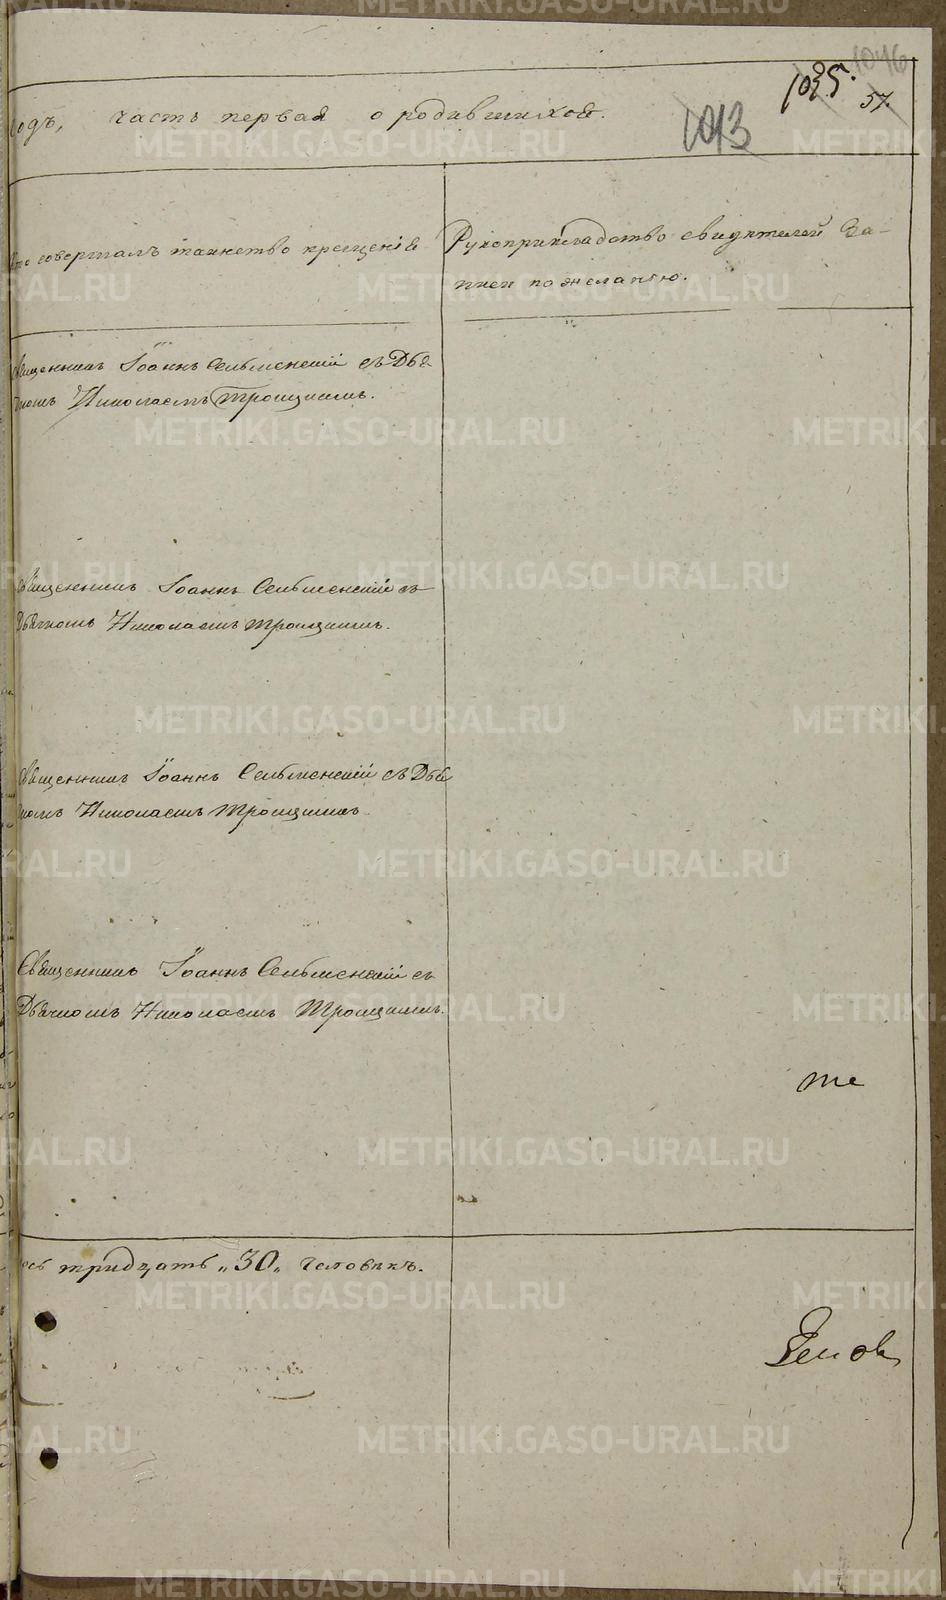 1046
1035.
57.
1013
годъ, часть первая о родившихся.
Кто совершалъ таинство крещенія
Рукоприкладство свидѣтелей за-
писи по желанію.
Священникъ Іоаннъ Сельменскій съ Дья
чкомъ Николаемъ Троицкимъ.
Священникъ Іоаннъ Сельменскій съ
Дьячкомъ Николаемъ Троицкимъ.
Священникъ Іоаннъ Сельменскій съ Дья
чкомъ Николаемъ Троицкимъ
Священникъ Іоаннъ Сельменскій съ
Дьячкомъ Николаемъ Троицкимъ.
те
ось тридцать „30„ человѣкъ.
METRIKI.GASO-URAL.RU